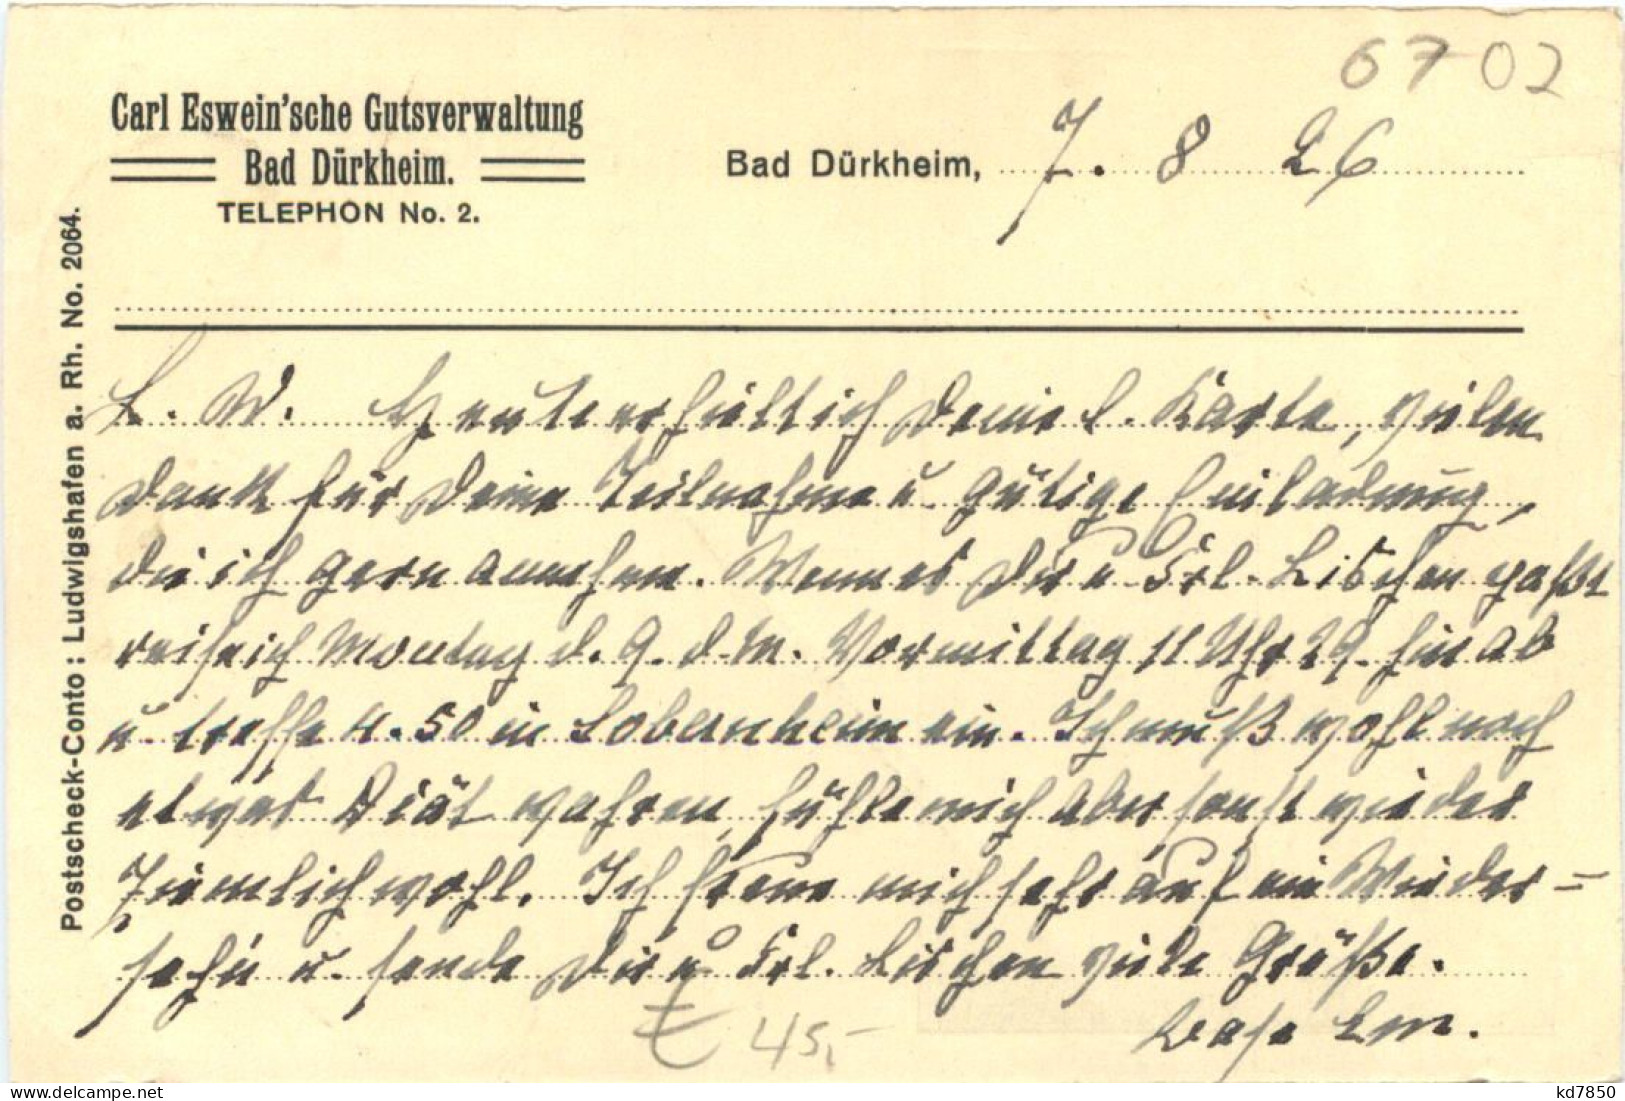 6702
Carl Eswein'sche Gutsverwaltung
Bad Dürkheim.
TELEPHON No. 2.
Bad Dürkheim, 7. 8 26
Postscheck-Conto: Ludwigshafen a. Rh. No. 2064.
L. W. Heute erhielt ich Deine l. Karte, vielen
Dank für Deine Teilnahme u. gütige Einladung,
die ich gern annehme. Wenn es Dir u. Frl. Lischen paßt
reise ich Montag d. 9. d. M. Vormittag 11 Uhr 29 hier ab
u. treffe 4.50 in Sobernheim ein. Ich muß wohl noch
etwas Diät wahren, fühle mich aber sonst wieder
ziemlich wohl. Ich freue mich sehr auf ein Wieder=
sehn u. sende Dir u. Frl. Lischen viele Grüße.
Base Em.
45,-
kd7850